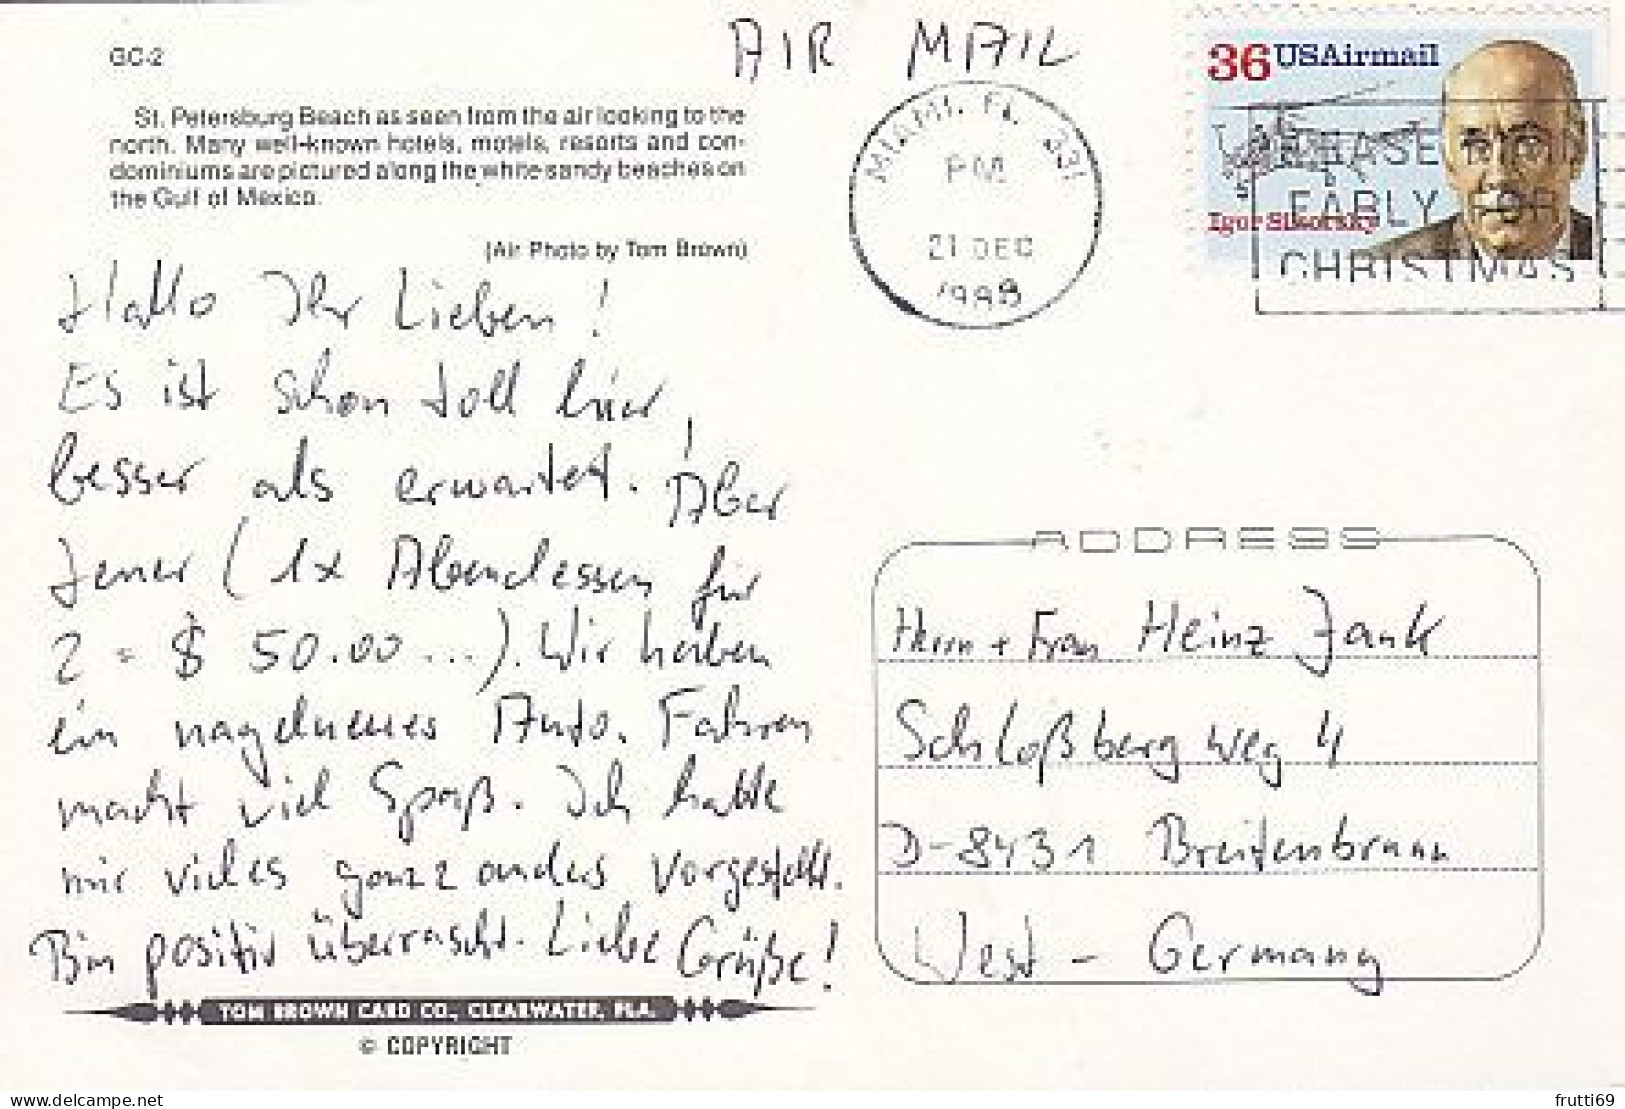 GC-2
St. Petersburg Beach as seen from the air looking to the
north. Many well-known hotels, motels, resorts and con-
dominiums are pictured along the white sandy beaches on
the Gulf of Mexico.
(Air Photo by Tom Brown)
Hallo Ihr Lieben!
Es ist schon toll hier,
besser als erwartet. Aber
teuer (1x Abendessen für
2 = $ 50.00 ...). Wir haben
ein nagelneues Auto. Fahren
macht viel Spaß. Ich hatte
mir vieles ganz anders vorgestellt.
Bin positiv überrascht. Liebe Grüße!
TOM BROWN CARD CO., CLEARWATER, FLA.
© COPYRIGHT
AIR MAIL
MIAMI, FL 331
PM
21 DEC
36 USAirmail
Igor Sikorsky
EARLY FOR
CHRISTMAS
ADDRESS
Herrn + Frau Heinz Jank
Schloßberg Weg 4
D-8431 Breitenbrunn
West - Germany
frutti69